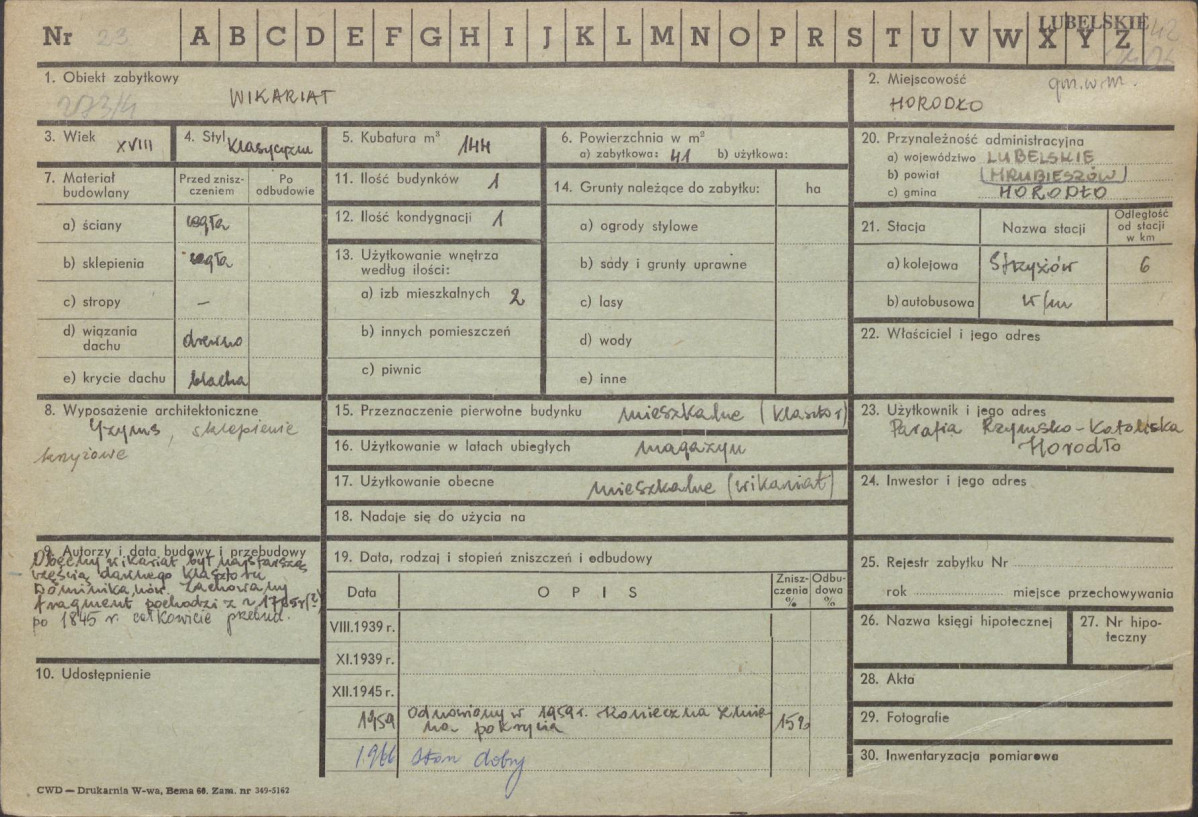 Nr 23 A B C D E F G H I J K L M N O P R S T U V W X Y Z LUBELSKIE
1. Obiekt zabytkowy
WIKARIAT
2. Miejscowość gm.w.m.
HORODŁO
3. Wiek XVIII
4. Styl klasycyzm
5. Kubatura m³ 144
6. Powierzchnia w m²
a) zabytkowa: 41 b) użytkowa:
7. Materiał budowlany
Przed znisz-
czeniem
Po
odbudowie
a) ściany cegła
b) sklepienia cegła
c) stropy –
d) wiązania
dachu drewno
e) krycie dachu blacha
8. Wyposażenie architektoniczne
gzyms, sklepienie
krzyżowe
9. Autorzy i data budowy i przebudowy
Obecny wikariat był najstarszą
częścią dawnego klasztoru
Dominikanów. Zachowany
fragment pochodzi z r 1765r(?)
po 1845 r. całkowicie przebud.
10. Udostępnienie
11. Ilość budynków 1
12. Ilość kondygnacji 1
13. Użytkowanie wnętrza
według ilości:
a) izb mieszkalnych 2
b) innych pomieszczeń
c) piwnic
14. Grunty należące do zabytku: ha
a) ogrody stylowe
b) sady i grunty uprawne
c) lasy
d) wody
e) inne
15. Przeznaczenie pierwotne budynku mieszkalne (klasztor)
16. Użytkowanie w latach ubiegłych magazyn
17. Użytkowanie obecne mieszkalne (wikariat)
18. Nadaje się do użycia na
19. Data, rodzaj i stopień zniszczeń i odbudowy
Data
O P I S
Znisz-
czenia
%
Odbu-
dowa
%
VIII.1939 r.
XI.1939 r.
XII.1945 r.
1959 Odnowiony w 1959 r. Konieczna zmia
na pokrycia 15%
1966 Stan dobry
20. Przynależność administracyjna
a) województwo LUBELSKIE
b) powiat (HRUBIESZÓW)
c) gmina HORODŁO
21. Stacja
Nazwa stacji
Odległość
od stacji
w km
a) kolejowa Strzyżów 6
b) autobusowa w/m
22. Właściciel i jego adres
23. Użytkownik i jego adres
Parafia Rzymsko-Katolicka
Horodło
24. Inwestor i jego adres
25. Rejestr zabytku Nr
rok miejsce przechowywania
26. Nazwa księgi hipotecznej
27. Nr hipo-
teczny
28. Akta
29. Fotografie
30. Inwentaryzacja pomiarowa
CWD — Drukarnia W-wa, Bema 60. Zam. nr 349-5162